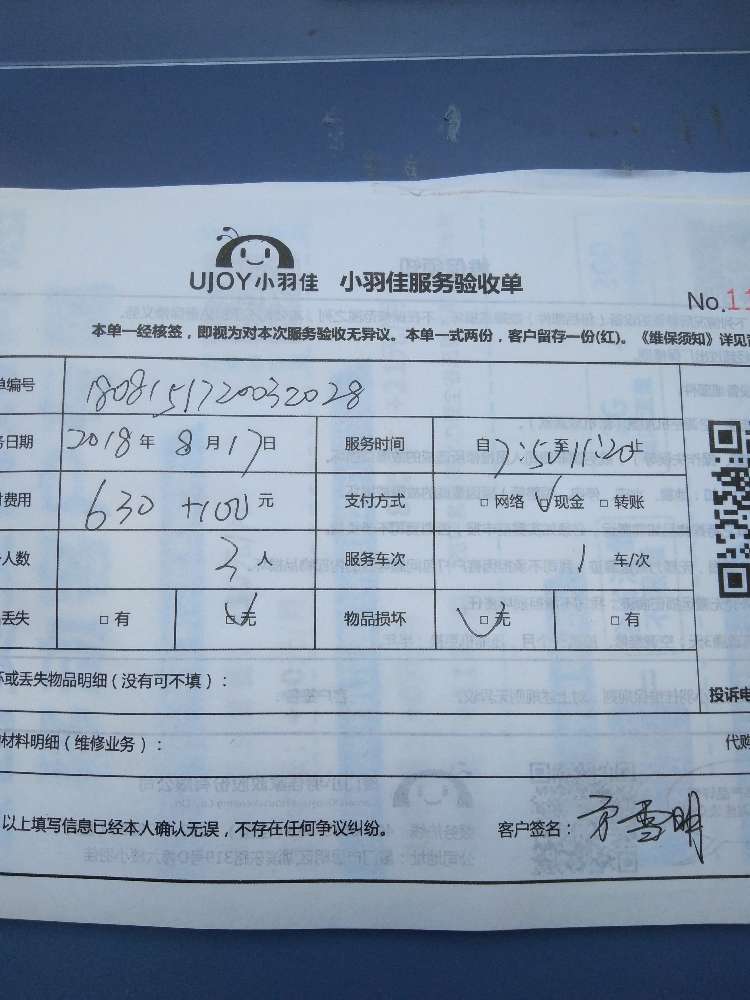 UJOY小羽佳 小羽佳服务验收单
No.11
本单一经核签，即视为对本次服务验收无异议。本单一式两份，客户留存一份(红)。《维保须知》详见
单编号 1808151720032028
务日期 2018年8月17日 服务时间 自7:50至11:20止
费用 630+100元 支付方式 □网络 ☑现金 □转账
人数 3人 服务车次 1车/次
丢失 □有 ☑无 物品损坏 ☑无 □有
坏或丢失物品明细（没有可不填）： 投诉电
材料明细（维修业务）： 代购
以上填写信息已经本人确认无误，不存在任何争议纠纷。 客户签名：